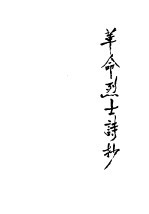 革命烈士詩抄